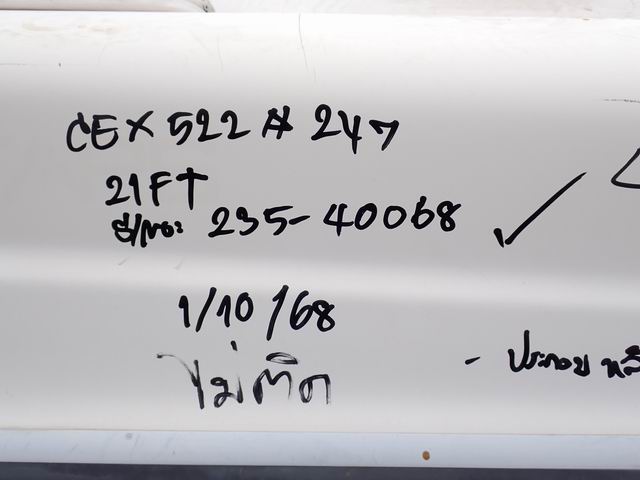 CEX 522 # 247
21FT
235-40068
1/10/68
ไม่ติด
- ประกอบ